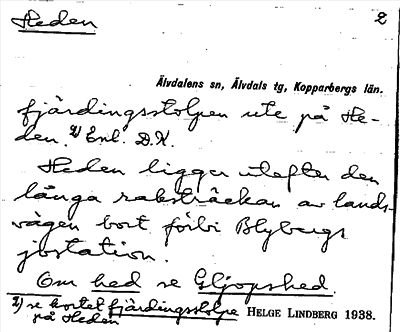 Heden 2
Älvdalens sn, Älvdals tg, Kopparbergs län.
fjärdingsstolpen ute på He-
den. 2) Enl. D.K.
Heden ligger utefter den
långa raksträckan av lands-
vägen bort förbi Blybergs
jbstation.
Om hed se Gljopshed.
2) se kortet fjärdingsstolpe
på Heden
HELGE LINDBERG 1938.